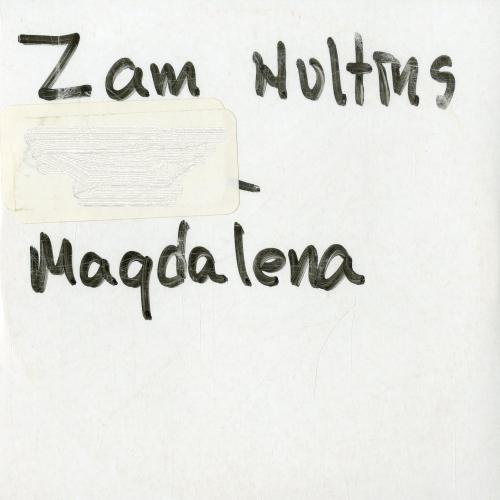 Zam Nultms
Magdalena